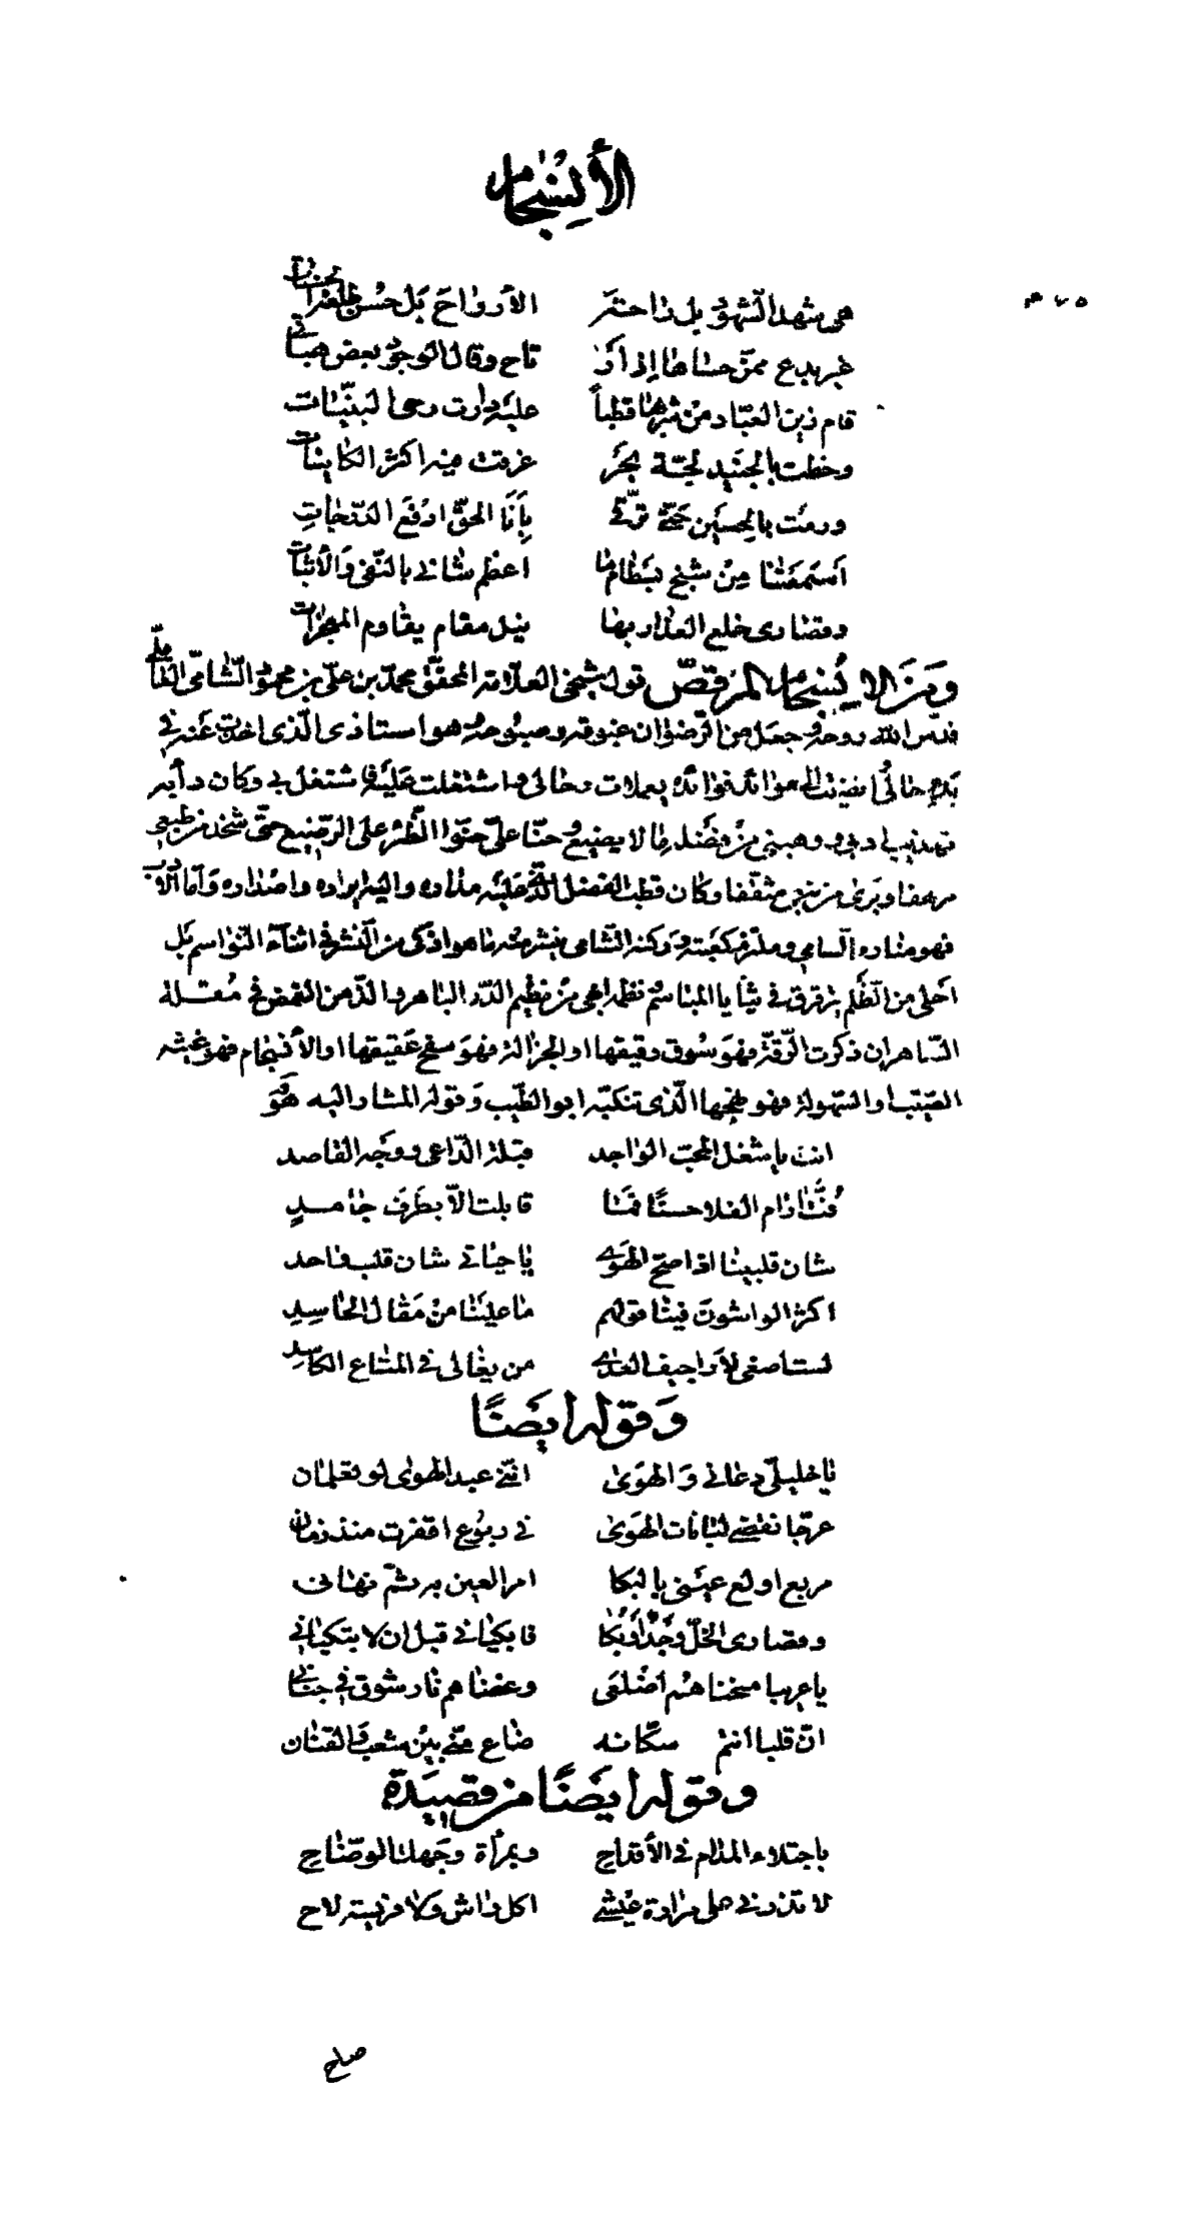 الأنسجام
٣٧٥
هى شهد الشهود بل راحة الأرواح بل حسن طلعة الحسنات
غير بدع ممن حساها إذا تاح وقال الوجود بعض هباتي
قام زين العباد من شربها قطباً عليه دارت رحى البينات
وخطت بالجنيد لجة بحر غرقت فيه اكثر الكاينات
ورمت بالحسين حتى ترقى بأنا الحق ارفع الدرجات
أسمعتنا من شيخ بسطامها اعظم شاني بالنفي والأثبات
وقصارى خلع العذار بها نيل مقام يقاوم المعجزات
ومن الانسجام المرقص قول شيخي العلامة المحقق محمد بن علي بن محمود الشامي العاملي
قدس الله روحه وجعل من الرضوان غبوقه وصبوحه هو استاذى الّذى اخذت عنه في
بدء حالي وانضيت الى موائد فوائده يعملات رحالي واشتغلت عليه فاشتغل بي وكان دأبه
تهذيب أدبي ووهبني من فضله ما لا يضيع وحنا علىّ حنو الظئر على الرضيع حتى شحذ من طبعي
مرهفا وبرى من نبعي مثقفا وكان قطب الفضل الّذى عليه مداره واليه ايراده واصداره وأما الأدب
فهو مناره السامي وملتزم كعبته وركنه الشامي ينشر منه ما هو اذكى من النشر في اثناء النواسم بل
احلى من الظلم يترقرق في ثنايا المباسم نظمه ابهى من نظيم الدر الباهر والذ من الغمض في مقلة
الساهر ان ذكرت الرقة فهو سوق رقيقها او الجزالة فهو سفح عقيقها او الأنسجام فهو غيثه
الصيب او السهولة فهو نهجها الّذى تنكبه ابو الطيب وقوله المشار اليه هو
انت يا شغل المحب الواجد قبلة الدّاعى ووجه القاصد
فتّ ارام الفلا حسنًا فما قابلت الاّ بطرف جامد
شان قلبينا اذا صح الهوى يا حياتي شان قلب واحد
اكثر الواشون فينا قولهم ما علينا من مقال الحاسد
لست اصغى لأراجيف العدى من يغالى في المتاع الكاسد
وقوله ايضًا
يا خليلىّ دعاني والهوى انّني عبد الهوى لو تعلمان
عرّجا نقضي لبانات الهوى في ربوع اقفرت منذ زمان
مربع اولع عيني بالبكا امر العين به ثم نهاني
وقصارى الخلّ وجدًا وبكا فابكياني قبل ان لا تبكياني
يا عريبا سخنا هم اضلعى وعضا هم نار شوق في جناني
انّ قلبا انتم سكانه ضاع منّي بين شعب والقنان
وقوله ايضًا من قصيدة
باجتلاء المدام في الأقداح وبمرآة وجهك الوضّاح
لا تذرني على مرادة عيشي اكل واش ولا فريسة لاح
صلح